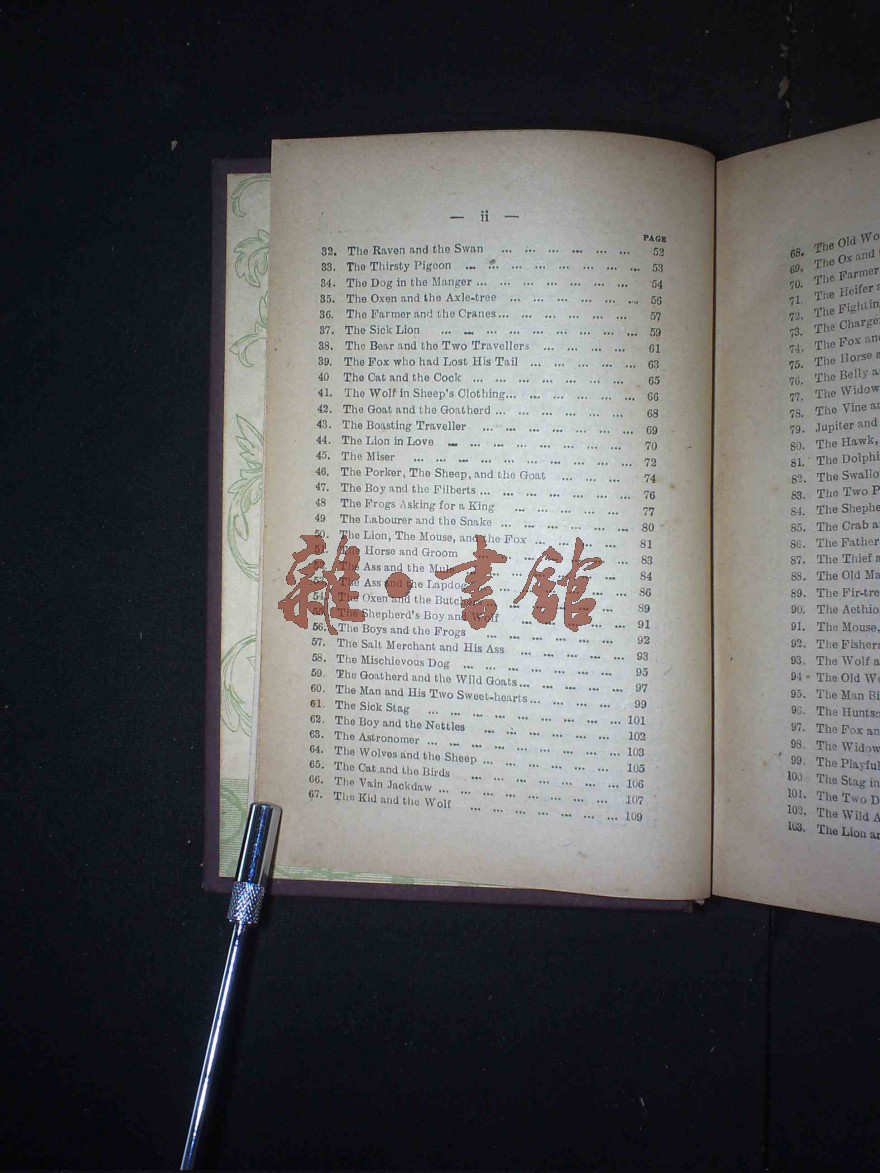 — ii —
PAGE
32. The Raven and the Swan ... ... ... ... ... ... 52
33. The Thirsty Pigeon ... ... ... ... ... ... ... ... 53
34. The Dog in the Manger ... ... ... ... ... ... ... 54
35. The Oxen and the Axle-tree ... ... ... ... ... ... 56
36. The Farmer and the Cranes ... ... ... ... ... ... 57
37. The Sick Lion ... ... ... ... ... ... ... ... 59
38. The Bear and the Two Travellers ... ... ... ... 61
39. The Fox who had Lost His Tail ... ... ... ... ... 63
40 The Cat and the Cock ... ... ... ... ... ... ... 65
41. The Wolf in Sheep's Clothing... ... ... ... ... ... 66
42. The Goat and the Goatherd ... ... ... ... ... ... 68
43. The Boasting Traveller ... ... ... ... ... ... 69
44. The Lion in Love ... ... ... ... ... ... ... 70
45. The Miser ... ... ... ... ... ... ... ... ... 72
46. The Porker, The Sheep, and the Goat ... ... ... 74
47. The Boy and the Filberts ... ... ... ... ... ... 76
48 The Frogs Asking for a King ... ... ... ... ... 77
49 The Labourer and the Snake ... ... ... ... ... ... 80
50. The Lion, The Mouse, and the Fox ... ... ... ... 81
51. The Horse and Groom ... ... ... ... ... ... 83
52. The Ass and the Mule ... ... ... ... ... ... 84
53. The Ass and the Lapdog ... ... ... ... ... ... 86
54. The Oxen and the Butchers ... ... ... ... ... 89
55. The Shepherd's Boy and Wolf ... ... ... ... ... 91
56. The Boys and the Frogs ... ... ... ... ... ... 92
57. The Salt Merchant and His Ass ... ... ... ... ... 93
58. The Mischievous Dog ... ... ... ... ... ... ... 95
59. The Goatherd and the Wild Goats... ... ... ... ... 97
60. The Man and His Two Sweet-hearts ... ... ... ... 99
61. The Sick Stag ... ... ... ... ... ... ... ... 101
62. The Boy and the Nettles ... ... ... ... ... ... 102
63. The Astronomer ... ... ... ... ... ... ... ... 103
64. The Wolves and the Sheep ... ... ... ... ... ... 105
65. The Cat and the Birds ... ... ... ... ... ... 106
66. The Vain Jackdaw ... ... ... ... ... ... ... 107
67. The Kid and the Wolf ... ... ... ... ... ... 109
雜·書館
68. The Old
69. The Ox and
70. The Farmer
71. The Heifer
72. The Fighting
73. The Charger
74. The Fox and
75. The Horse
76. The Belly
77. The Widow
78. The Vine
79. Jupiter and
80. The Hawk,
81. The
82. The
83. The Two
84. The
85. The Crab
86. The Father
87. The Thief
88. The Old
89. The
90. The
91. The Mouse,
92. The
93. The Wolf
94. The Old
95. The Man
96. The
97. The Fox
98. The Widow
99. The
100 The Stag in
101. The Two
102. The Wild
103. The Lion